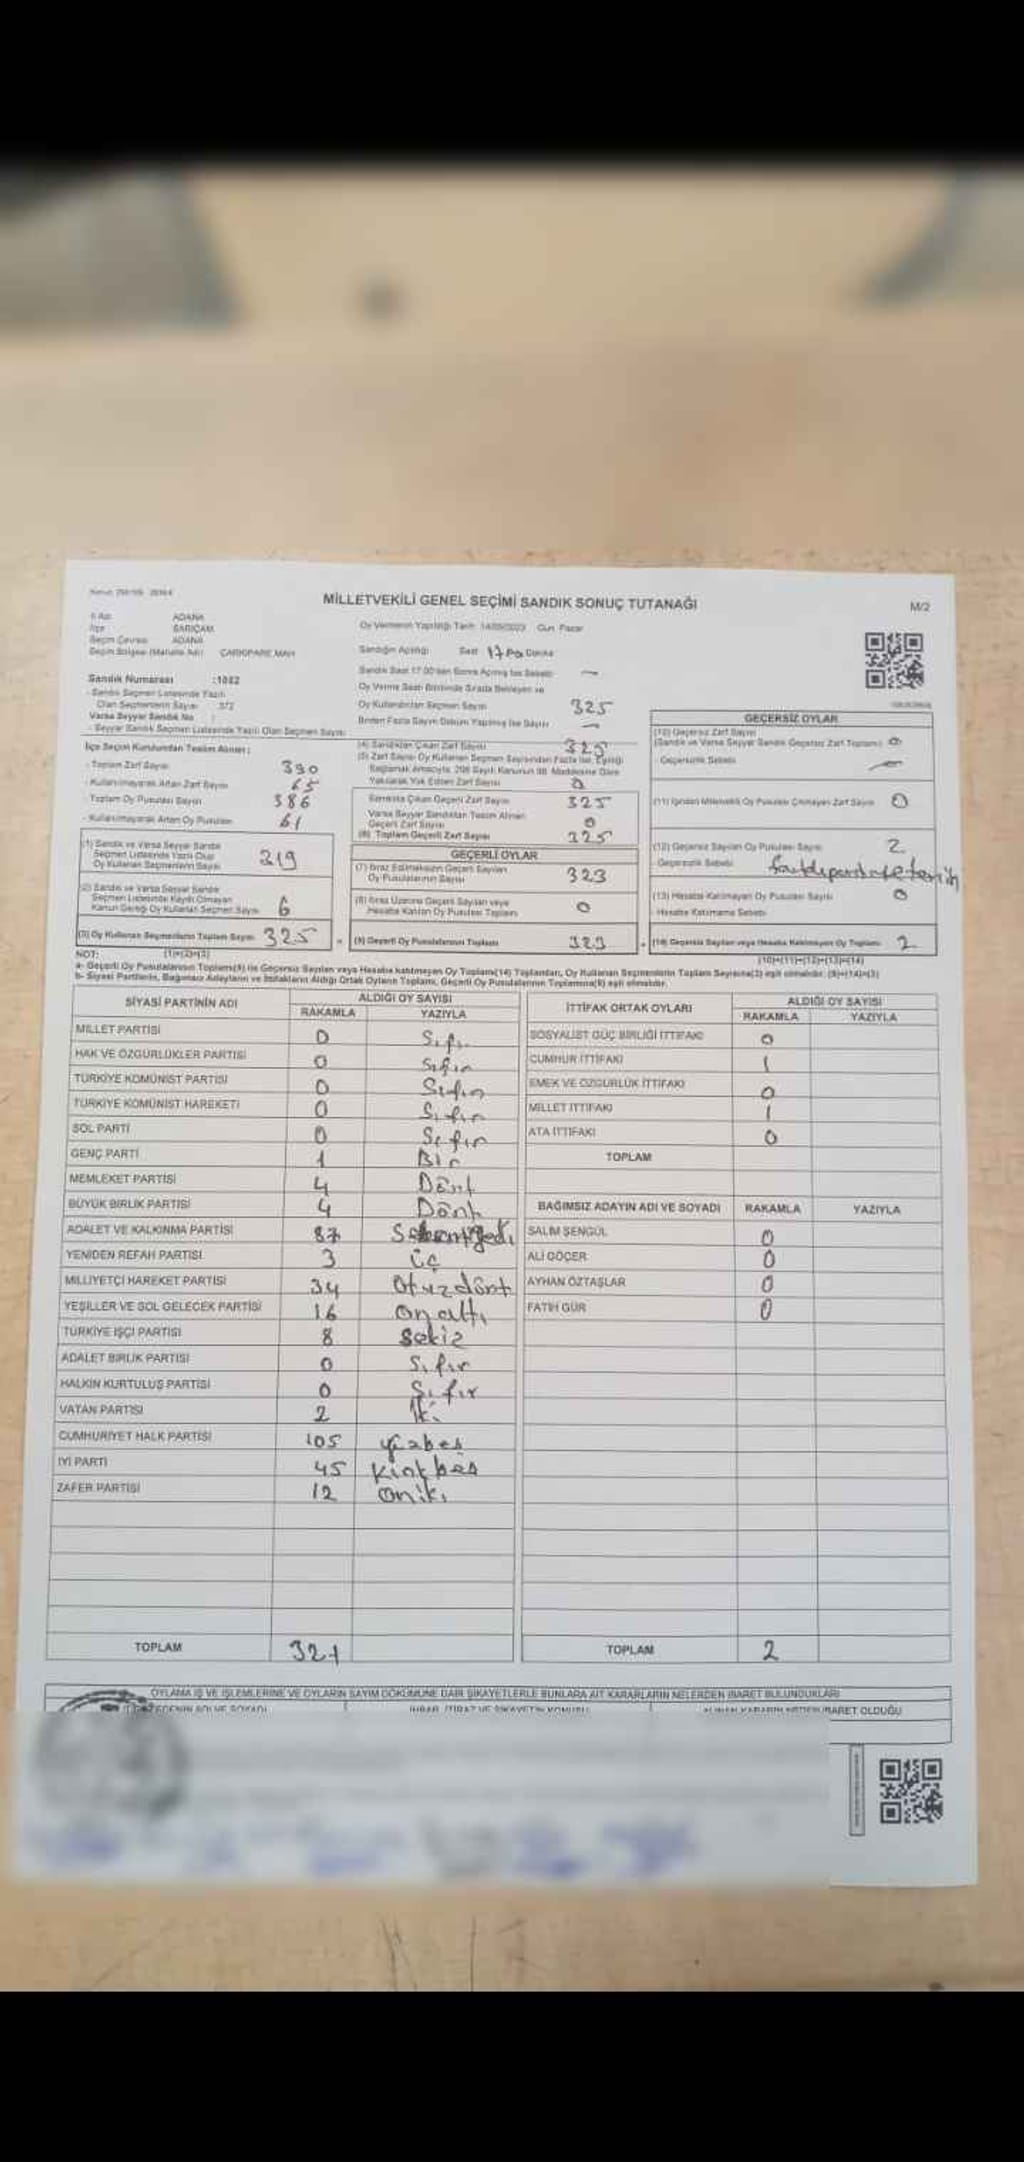 MİLLETVEKİLİ GENEL SEÇİMİ SANDIK SONUÇ TUTANAĞI
M/2
İl Adı ADANA
İlçe SARIÇAM
Seçim Çevresi ADANA
Seçim Bölgesi (Mahalle Adı)
Oy Vermenin Yapıldığı Tarih: 14/05/2023 Gün: Pazar
Sandığın Açıldığı Saat
Sandık Numarası :1082
- Sandık Seçmen Listesinde Yazılı
Olan Seçmenlerin Sayısı 372
Varsa Seyyar Sandık No :
- Seyyar Sandık Seçmen Listesinde Yazılı Olan Seçmen Sayısı:
Oy Verme Saati Bitiminde Sırada Bekleyen ve
Oy Kullandırılan Seçmen Sayısı 325
Birden Fazla Sayım Döküm Yapılmış İse Sayısı —
İlçe Seçim Kurulundan Teslim Alınan:
- Toplam Zarf Sayısı 390
- Kullanılmayarak Artan Zarf Sayısı 65
- Toplam Oy Pusulası Sayısı 386
- Kullanılmayarak Artan Oy Pusulası 61
(1) Sandık ve Varsa Seyyar Sandık
Seçmen Listesinde Yazılı Olup
Oy Kullanan Seçmenlerin Sayısı 219
(2) Sandık ve Varsa Seyyar Sandık
Seçmen Listesinde Kayıtlı Olmayan
Kanun Gereği Oy Kullanan Seçmen Sayısı 6
(3) Oy Kullanan Seçmenlerin Toplam Sayısı 325
(1)+(2)=(3)
(4) Sandıktan Çıkan Zarf Sayısı 325
(5) Zarf Sayısı Oy Kullanan Seçmen Sayısından Fazla İse, Eşitliği
Sağlamak Amacıyla, 298 Sayılı Kanunun 98. Maddesine Göre
Yakılarak Yok Edilen Zarf Sayısı 0
Sandıkta Çıkan Geçerli Zarf Sayısı 325
Varsa Seyyar Sandıktan Teslim Alınan
Geçerli Zarf Sayısı 0
(6) Toplam Geçerli Zarf Sayısı 325
GEÇERLİ OYLAR
(7) İtiraz Edilmeksizin Geçerli Sayılan
Oy Pusulalarının Sayısı 323
(8) İtiraz Üzerine Geçerli Sayılan veya
Hesaba Katılan Oy Pusulası Toplamı 0
(9) Geçerli Oy Pusulalarının Toplamı 323
GEÇERSİZ OYLAR
(10) Geçersiz Zarf Sayısı
(Sandık ve Varsa Seyyar Sandık Geçersiz Zarf Toplamı) 0
- Geçersizlik Sebebi —
(11) İçinden Milletvekili Oy Pusulası Çıkmayan Zarf Sayısı 0
(12) Geçersiz Sayılan Oy Pusulası Sayısı 2
- Geçersizlik Sebebi
(13) Hesaba Katılmayan Oy Pusulası Sayısı 0
- Hesaba Katılmama Sebebi
(14) Geçersiz Sayılan veya Hesaba Katılmayan Oy Toplamı 2
(10)+(11)+(12)+(13)=(14)
NOT:
a- Geçerli Oy Pusulalarının Toplamı(9) ile Geçersiz Sayılan veya Hesaba katılmayan Oy Toplamı(14) Toplamları, Oy Kullanan Seçmenlerin Toplam Sayısına(3) eşit olmalıdır. (9)+(14)=(3)
b- Siyasi Partilerin, Bağımsız Adayların ve İttifakların Aldığı Ortak Oyların Toplamı, Geçerli Oy Pusulalarının Toplamına(9) eşit olmalıdır.
SİYASİ PARTİNİN ADI ALDIĞI OY SAYISI
RAKAMLA YAZIYLA
MİLLET PARTİSİ 0 Sıfır
HAK VE ÖZGÜRLÜKLER PARTİSİ 0 Sıfır
TÜRKİYE KOMÜNİST PARTİSİ 0 Sıfır
TÜRKİYE KOMÜNİST HAREKETİ 0 Sıfır
SOL PARTİ 0 Sıfır
GENÇ PARTİ 1 Bir
MEMLEKET PARTİSİ 4 Dört
BÜYÜK BİRLİK PARTİSİ 4 Dört
ADALET VE KALKINMA PARTİSİ 87 Seksenyedi
YENİDEN REFAH PARTİSİ 3 üç
MİLLİYETÇİ HAREKET PARTİSİ 34 Otuzdört
YEŞİLLER VE SOL GELECEK PARTİSİ 16 onaltı
TÜRKİYE İŞÇİ PARTİSİ 8 sekiz
ADALET BİRLİK PARTİSİ 0 Sıfır
HALKIN KURTULUŞ PARTİSİ 0 Sıfır
VATAN PARTİSİ 2 İki
CUMHURİYET HALK PARTİSİ 105 yüzbeş
İYİ PARTİ 45 Kırkbeş
ZAFER PARTİSİ 12 oniki
TOPLAM 321
İTTİFAK ORTAK OYLARI ALDIĞI OY SAYISI
RAKAMLA YAZIYLA
SOSYALİST GÜÇ BİRLİĞİ İTTİFAKI 0
CUMHUR İTTİFAKI 1
EMEK VE ÖZGÜRLÜK İTTİFAKI 0
MİLLET İTTİFAKI 1
ATA İTTİFAKI 0
TOPLAM
BAĞIMSIZ ADAYIN ADI VE SOYADI RAKAMLA YAZIYLA
SALİM ŞENGÜL 0
ALİ GÖÇER 0
AYHAN ÖZTAŞLAR 0
FATİH GÜR 0
TOPLAM 2
OYLAMA İŞ VE İŞLEMLERİNE VE OYLARIN SAYIM DÖKÜMÜNE DAİR ŞİKAYETLERLE BUNLARA AİT KARARLARIN NELERDEN İBARET BULUNDUKLARI